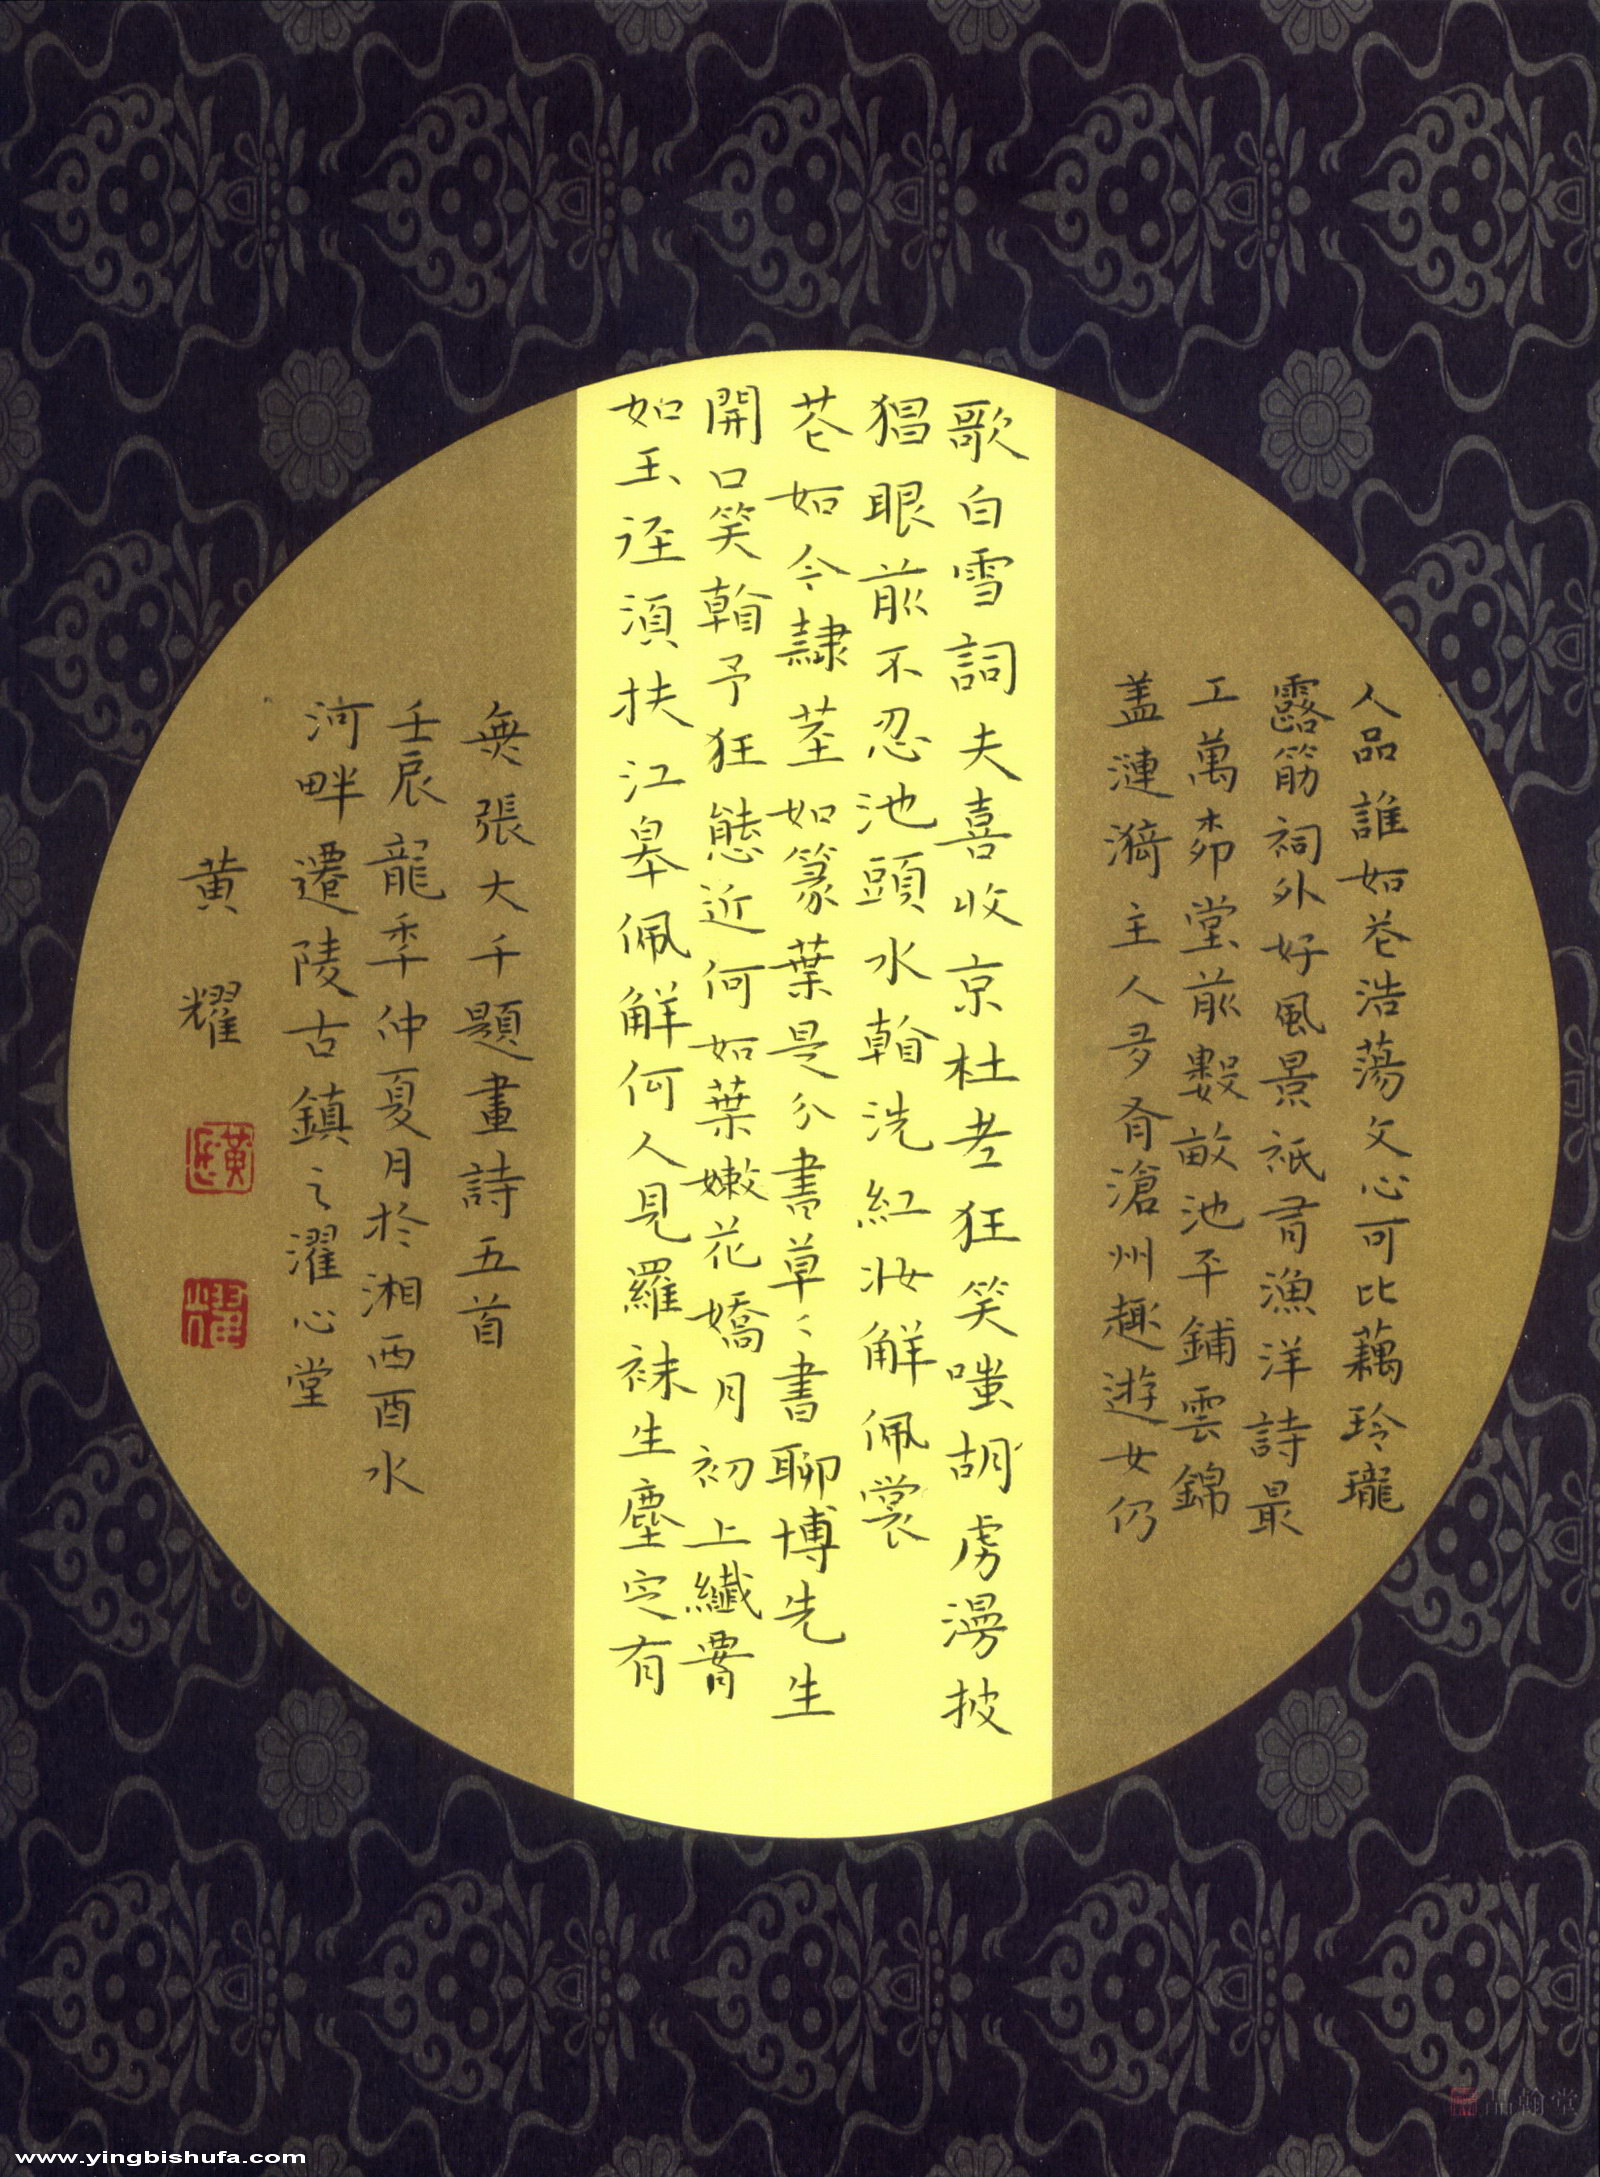 人品誰如花浩蕩文心可比藕玲瓏
露筋祠外好風景祇肯漁洋詩最
工萬柳堂前數畝池平鋪雲錦
盖漣漪主人多有滄州趣遊女仍
歌白雪詞夫喜收京杜老狂笑嗤胡虜漫披
猖眼前不忍池頭水翰洗紅妝解佩裳
花如今隸莖如篆葉是分書草〻書聊博先生
開口笑翰予狂態近何如葉嫩花嬌月初上纖霄
如玉徑須扶江皋佩解何人見羅袜生塵定有
無張大千題畫詩五首
壬辰龍年仲夏月於湘西酉水
河畔遷陵古鎮之濯心堂
黄耀
品翰堂
www.yingbishufa.com